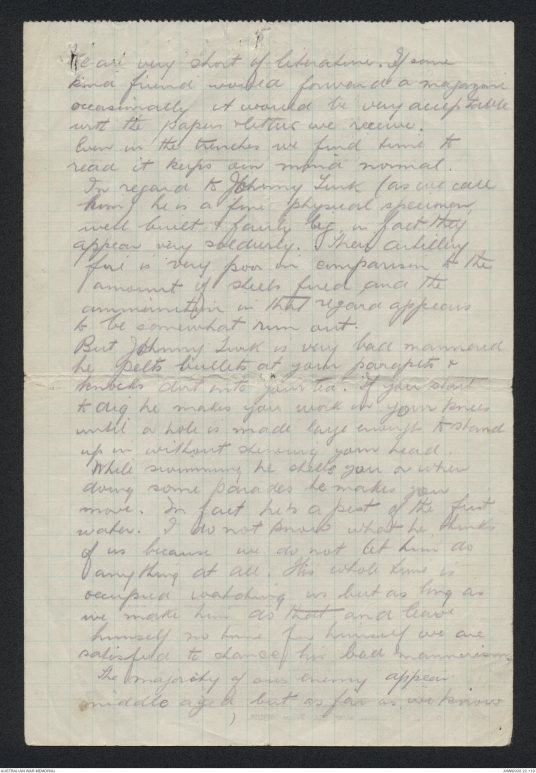 We are very short of literature. If some
kind friend would forward a magazine
occasionally it would be very acceptable
with the papers & letters we receive.
Even in the trenches we find time to
read it keeps our mind normal.
In regard to Johnny Turk (as we call
him) he is a fine physical specimen,
well built & fairly big in fact they
appear very soldierly. Their artillery
fire is very poor in comparison to the
amount of shells fired and the
ammunition in that regard appears
to be somewhat run out.
But Johnny Turk is very bad mannered
he pelts bullets at your parapets &
knocks dirt into your tea. If you start
to dig he makes you work on your knees
until a hole is made large enough to stand
up in without showing your head.
While swimming he shells you or when
doing some parades he makes you
move. In fact he's a pest of the first
water. I do not know what he thinks
of us because we do not let him do
anything at all. His whole time is
occupied watching us but as long as
we make him do that and leave
himself no time for himself we are
satisfied to chance his bad mannerisms
The majority of our enemy appear
middle aged but as far as we know
AUSTRALIAN WAR MEMORIAL